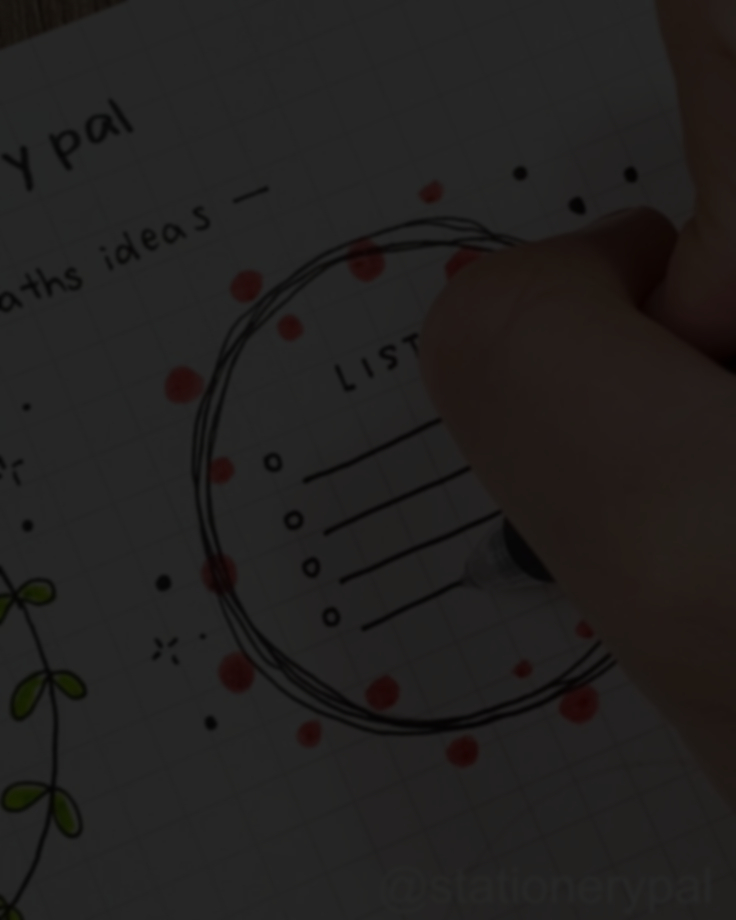 y pal
aths ideas —
LIST
@stationerypal